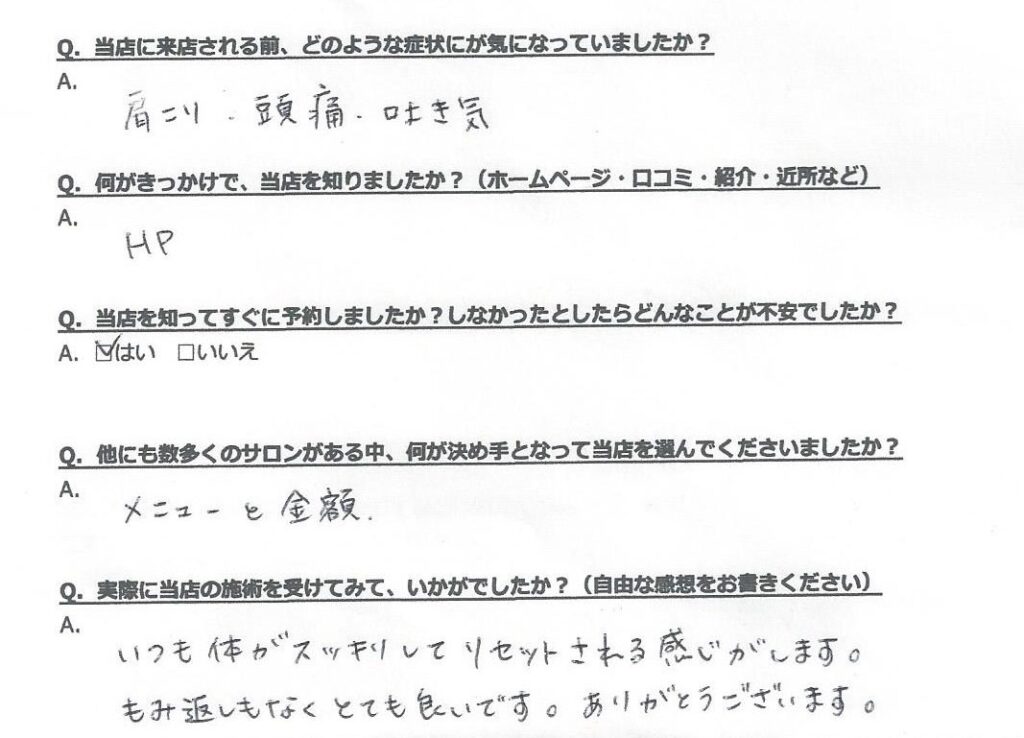 Q. 当店に来店される前、どのような症状にが気になっていましたか？
A.
肩こり．頭痛．吐き気
Q. 何がきっかけで、当店を知りましたか？（ホームページ・口コミ・紹介・近所など）
A.
HP
Q. 当店を知ってすぐに予約しましたか？しなかったとしたらどんなことが不安でしたか？
A. ☑はい □いいえ
Q. 他にも数多くのサロンがある中、何が決め手となって当店を選んでくださいましたか？
A.
メニューと金額.
Q. 実際に当店の施術を受けてみて、いかがでしたか？（自由な感想をお書きください）
A.
いつも体がスッキリしてリセットされる感じがします。
もみ返しもなくとても良いです。ありがとうございます。